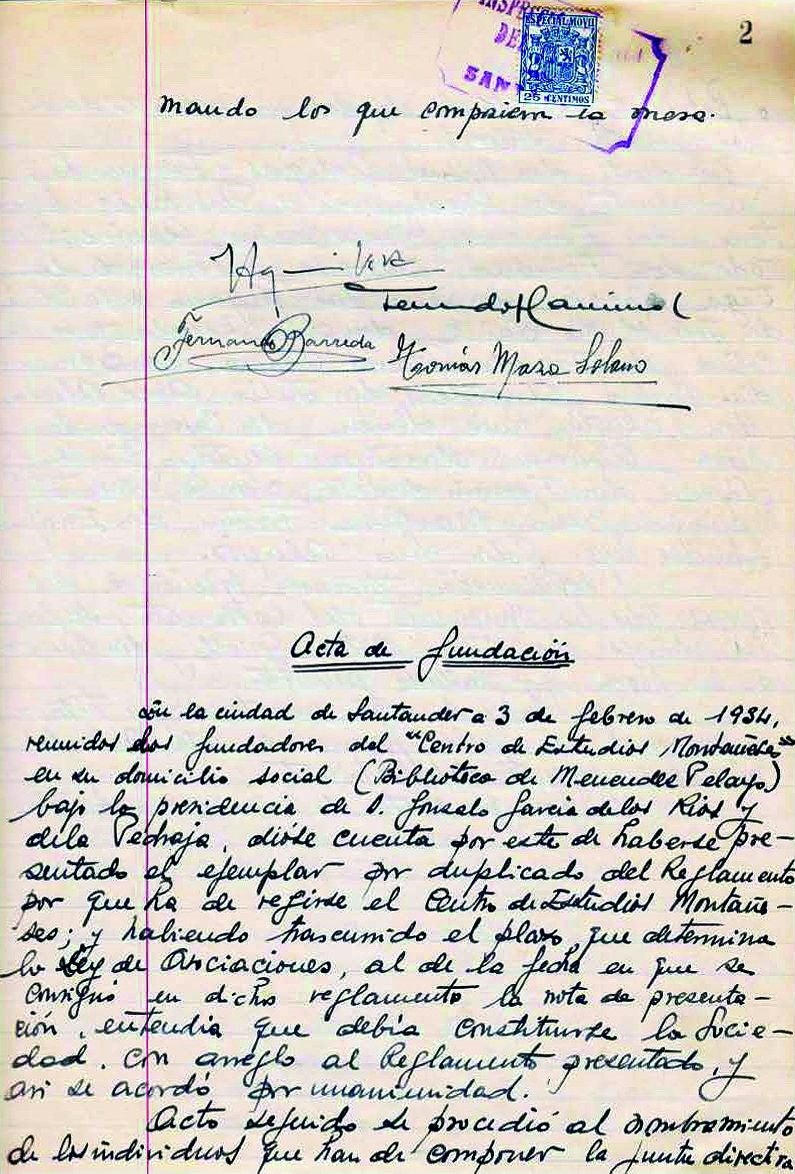 2
ESPECIAL MOVIL
25 CENTIMOS
DE
SAN
mando los que componen la mesa.
Fernando Barreda
Tomás Maza Solano
Acta de fundación
En la ciudad de Santander a 3 de febrero de 1934,
reunidos los fundadores del "Centro de Estudios Montañeses"
en su domicilio social (Biblioteca de Menendez Pelayo)
bajo la presidencia de D. Gonzalo Garcia de los Rios y
de la Pedraja, dióse cuenta por este de haberse pre-
sentado el ejemplar por duplicado del Reglamento
por que ha de regirse el Centro de Estudios Montañe-
ses; y habiendo trascurrido el plazo, que determina
la Ley de Asociaciones, al de la fecha en que se
consignó en dicho reglamento la nota de presenta-
ción, entendia que debía constituirse la Socie-
dad, con arreglo al Reglamento presentado, y
asi se acordó por unanimidad.
Acto seguido se procedió al nombramiento
de los individuos que han de componer la junta directiva